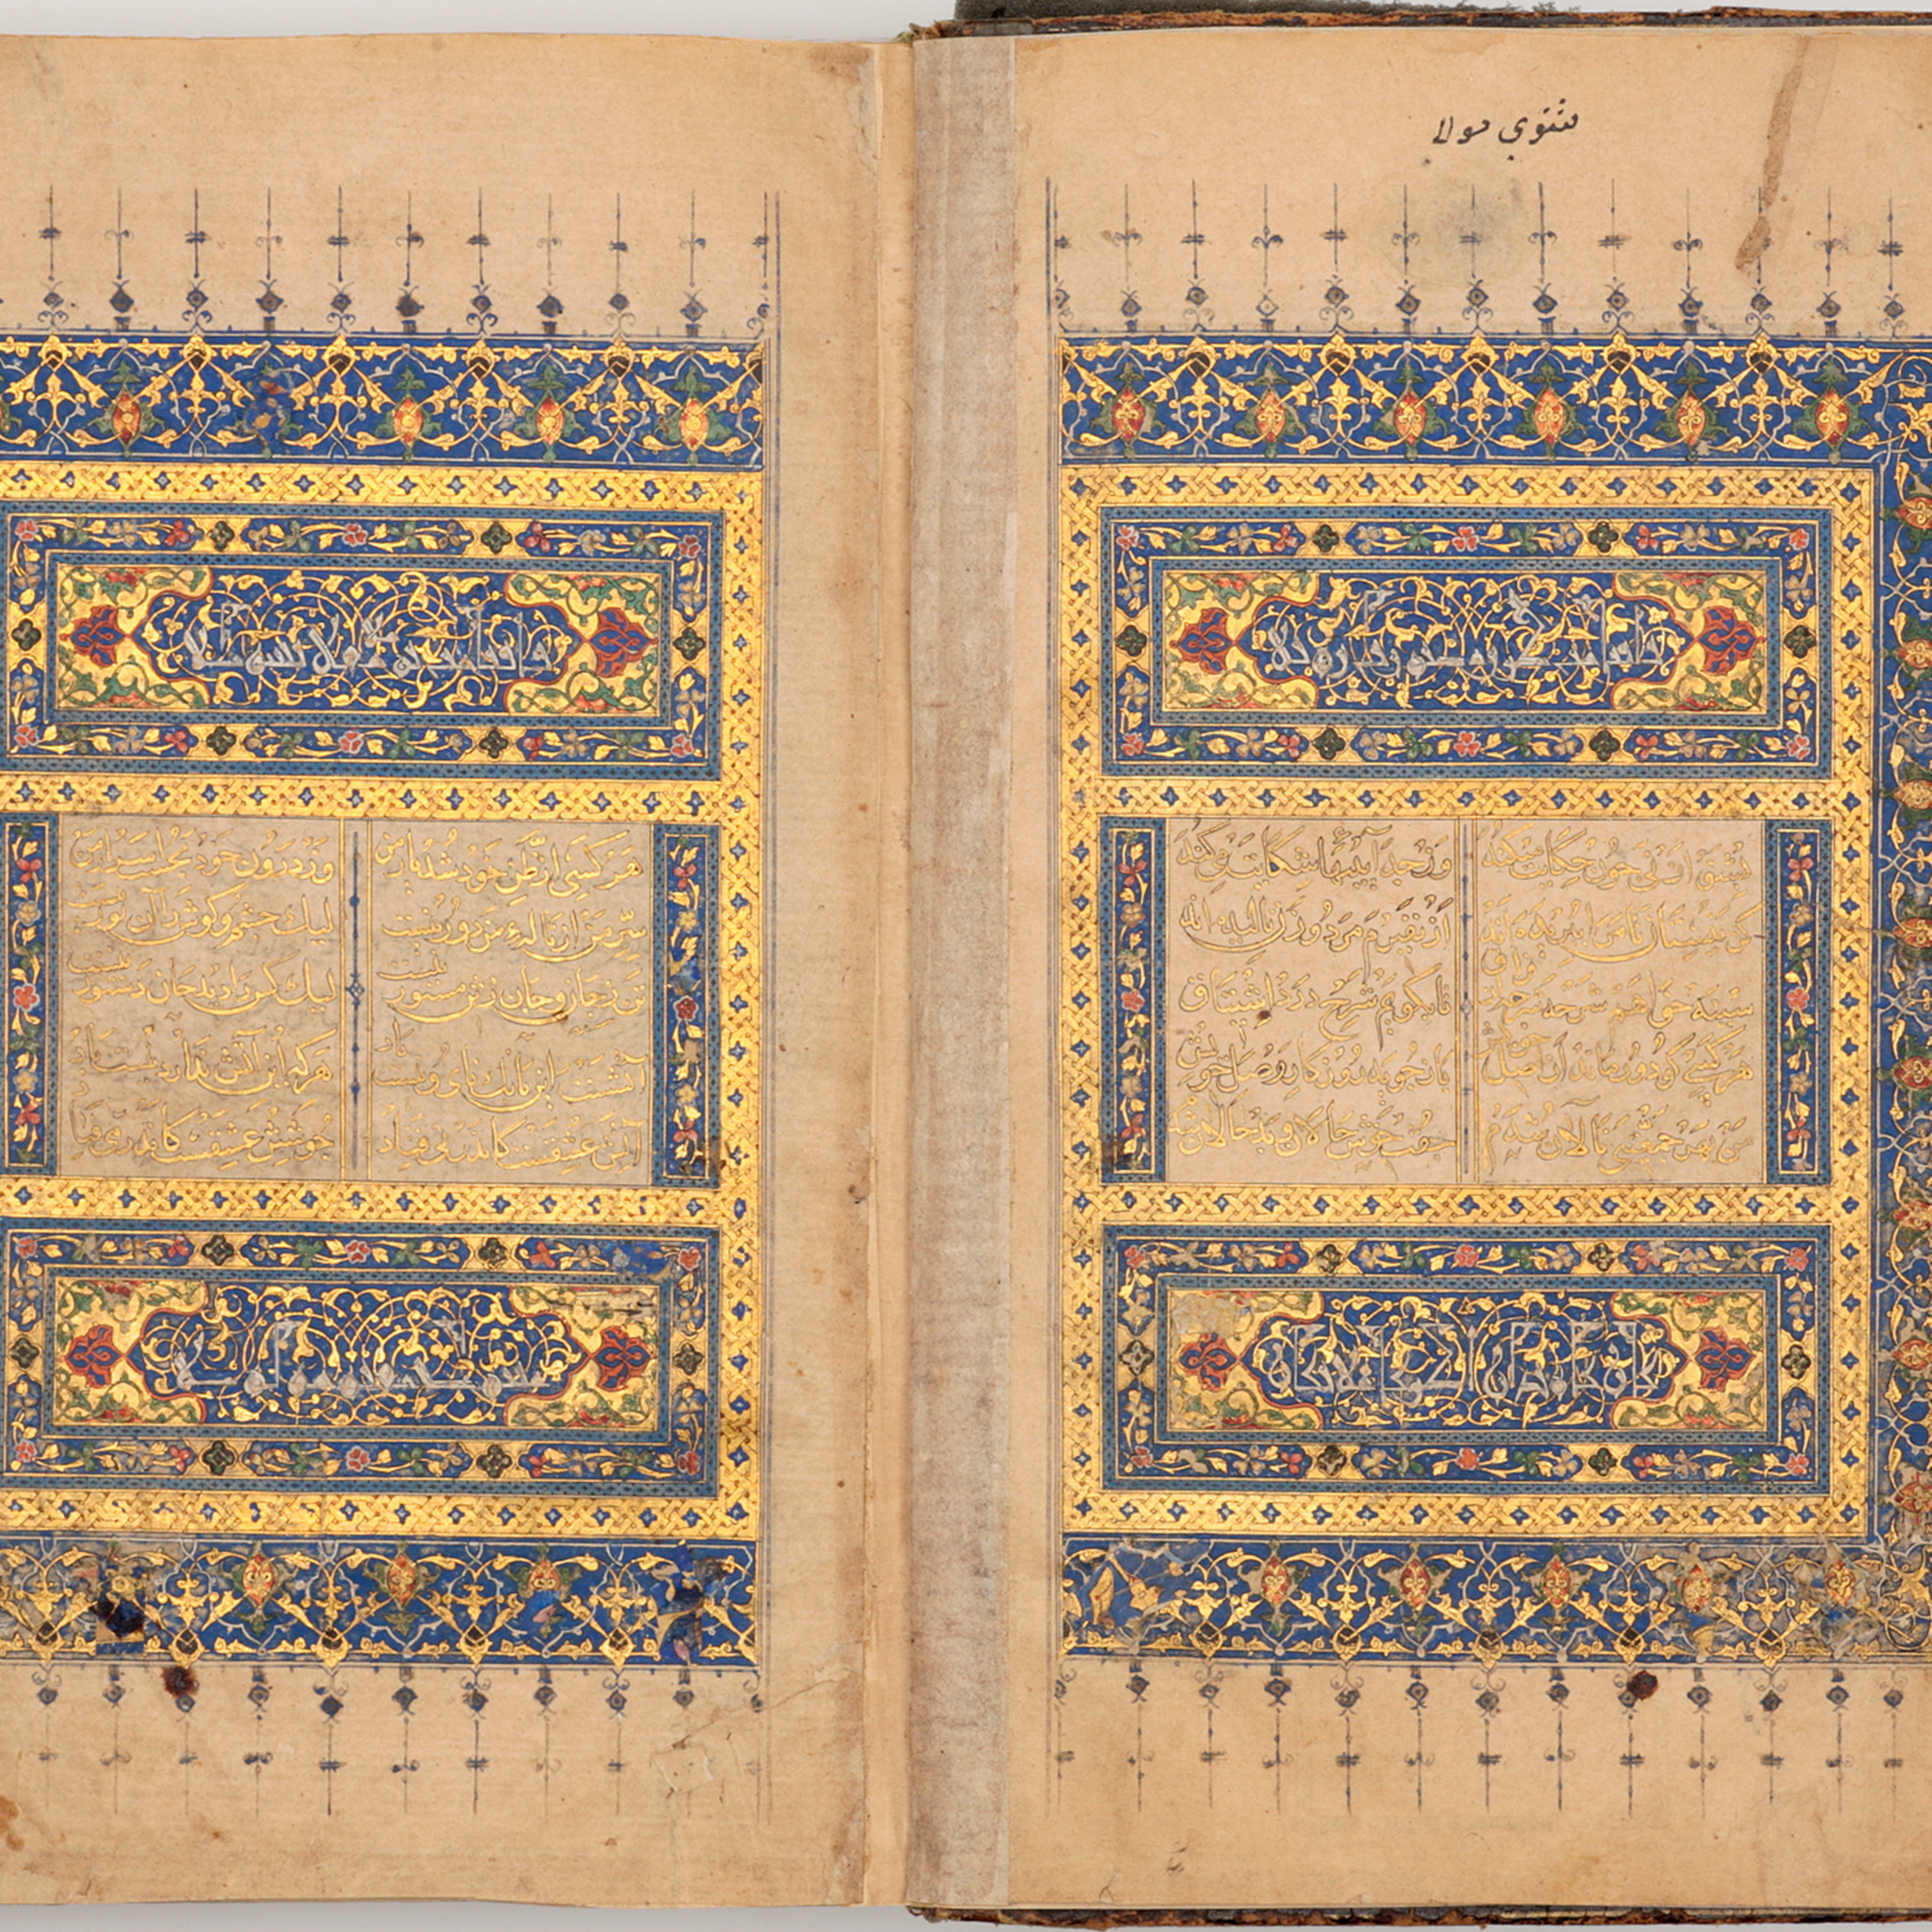 مثنوي مولا
بشنو از نی چون حکایت میکند وز جداییها شکایت میکند
کز نیستان تا مرا ببریده اند از نفیرم مرد و زن نالیده اند
سینه خواهم شرحه شرحه از فراق تا بگویم شرح درد اشتیاق
هر کسی کو دور ماند از اصل خویش باز جوید روزگار وصل خویش
من بهر جمعیتی نالان شدم جفت خوش حالان و بد حالان
هر کسی از ظن خود شد یار من وز درون خود نجست اسرار من
سر من از نالهٔ من دور نیست لیک چشم و گوش را آن نور نیست
تن ز جان و جان ز تن مستور نیست لیک کس را دید جان دستور نیست
آتشست این بانک نای و نیست باد هر که این آتش ندارد نیست باد
آتش عشقست کاندر نی فتاد جوشش عشقست کاندر می فتاد